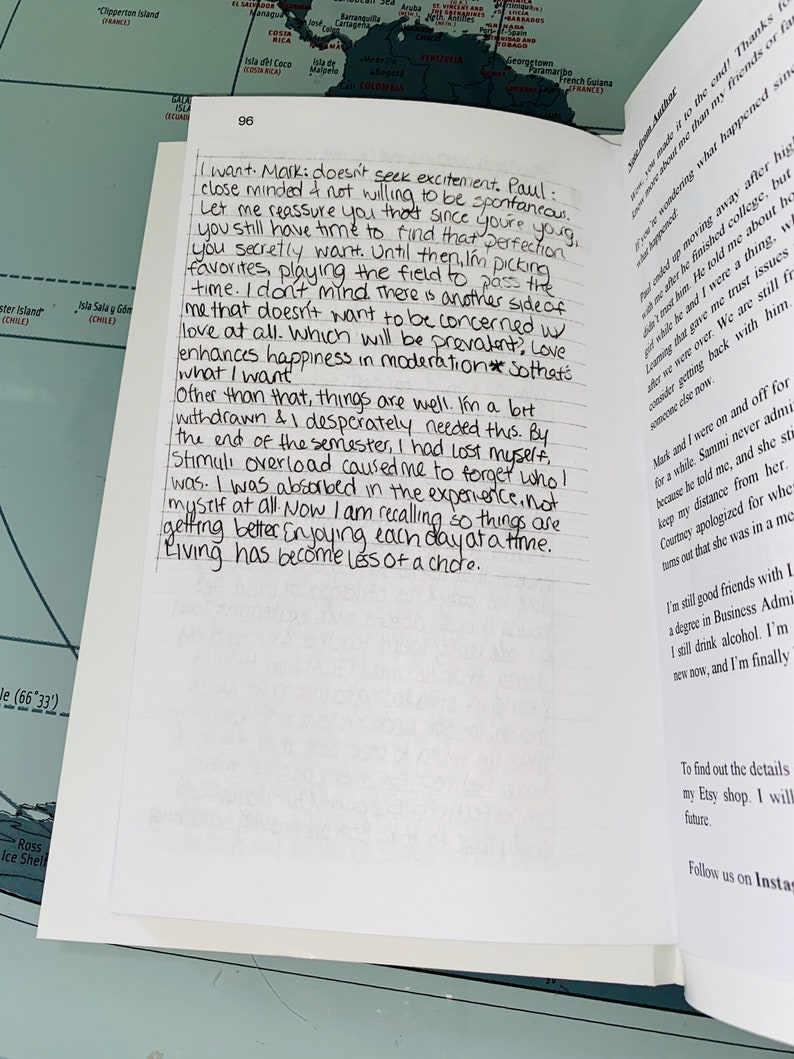 Clipperton Island
(FRANCE)
EL SALVADOR
Managua
COSTA
RICA
San
José
Colón
Panama
Barranquilla
Cartagena
Aruba
(NETH.)
Neth. Antilles
(NETH.)
Maracaibo
Caracas
ST. VINCENT AND
THE GRENADINES
ST. LUCIA
BARBADOS
GRENADA
Port-of-Spain
TRINIDAD AND
TOBAGO
Isla del Coco
(COSTA RICA)
Isla de
Malpelo
Medellín
Bogotá
Cali
COLOMBIA
VENEZUELA
Georgetown
Paramaribo
French Guiana
(FRANCE)
GUYANA
SURINAME
GALA
ISLA
(ECUAD
ster Island
(CHILE)
Isla Sala y Góm
(CHILE)
le (66°33')
Ross
Ice Shelf
96
I want. Mark: doesn't seek excitement. Paul:
close minded & not willing to be spontaneous.
Let me reassure you that since you're young,
you still have time to find that perfection
you secretly want. Until then, I'm picking
favorites, playing the field to pass the
time. I don't mind. There is another side of
me that doesn't want to be concerned w/
love at all. Which will be prevalent? Love
enhances happiness in moderation* so that's
what I want
Other than that, things are well. I'm a bit
withdrawn & I desperately needed this. By
the end of the semester, I had lost myself.
Stimuli overload caused me to forget who I
was. I was absorbed in the experience, not
myself at all. Now I am recalling so things are
getting better. Enjoying each day at a time.
Living has become less of a chore.
Note from Author
Wow, you made it to the end! Thanks fo
know more about me than my friends or fa
If you're wondering what happened sinc
what happened:
Paul ended up moving away after hig
with me after he finished college, but
didn't trust him. He told me about ho
girl while he and I were a thing, wh
Learning that gave me trust issues
after we were over. We are still fr
consider getting back with him.
someone else now.
Mark and I were on and off for
for a while. Sammi never admi
because he told me, and she sti
keep my distance from her.
Courtney apologized for whe
turns out that she was in a me
I'm still good friends with L
a degree in Business Admi
I still drink alcohol. I'm
new now, and I'm finally
To find out the details
my Etsy shop. I will
future.
Follow us on Insta